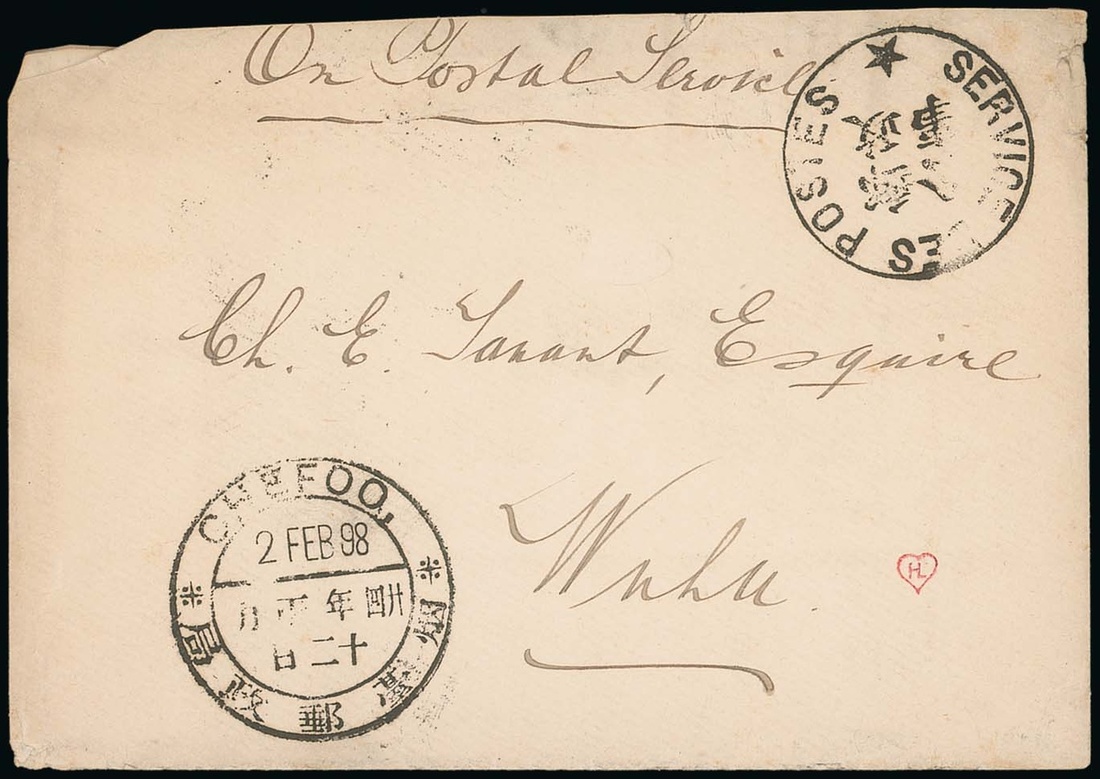 On Postal Service
SERVICE DES POSTES
郵政公事
Ch. E. Tanant, Esquire
Wuhu.
CHEFOO,
2 FEB 98
廿四年正月
十二日
烟臺郵政局
HL